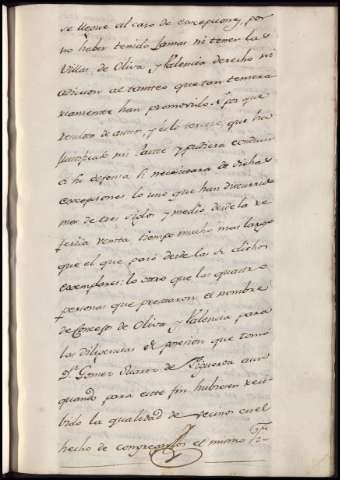 se llegue al caso de excepcion, y por
no haber tenido jamas ni tener las
Villas de Oliva y Valencia derecho ni
accion al tanteo que tan temera
riamente han promovido. Y por que
justificado mi parte y pudiera conducir
á su defensa si necesitara de dichas
excepciones: lo uno que han discurrido
mas de tres siglos y medio desde la re
ferida venta tiempo mucho mas largo
que el que pasó desde la de dichos
exemplares: lo otro que las quatro
personas que prestaron el nombre
de Concejo de Oliva y Valencia para
las diligencias de posesion que tomó
Dn. Gomez Suarez de Figueroa aun
quando para este fin hubiesen reci
bido la qualidad de vecinos en el
hecho de congregarlos el mismo